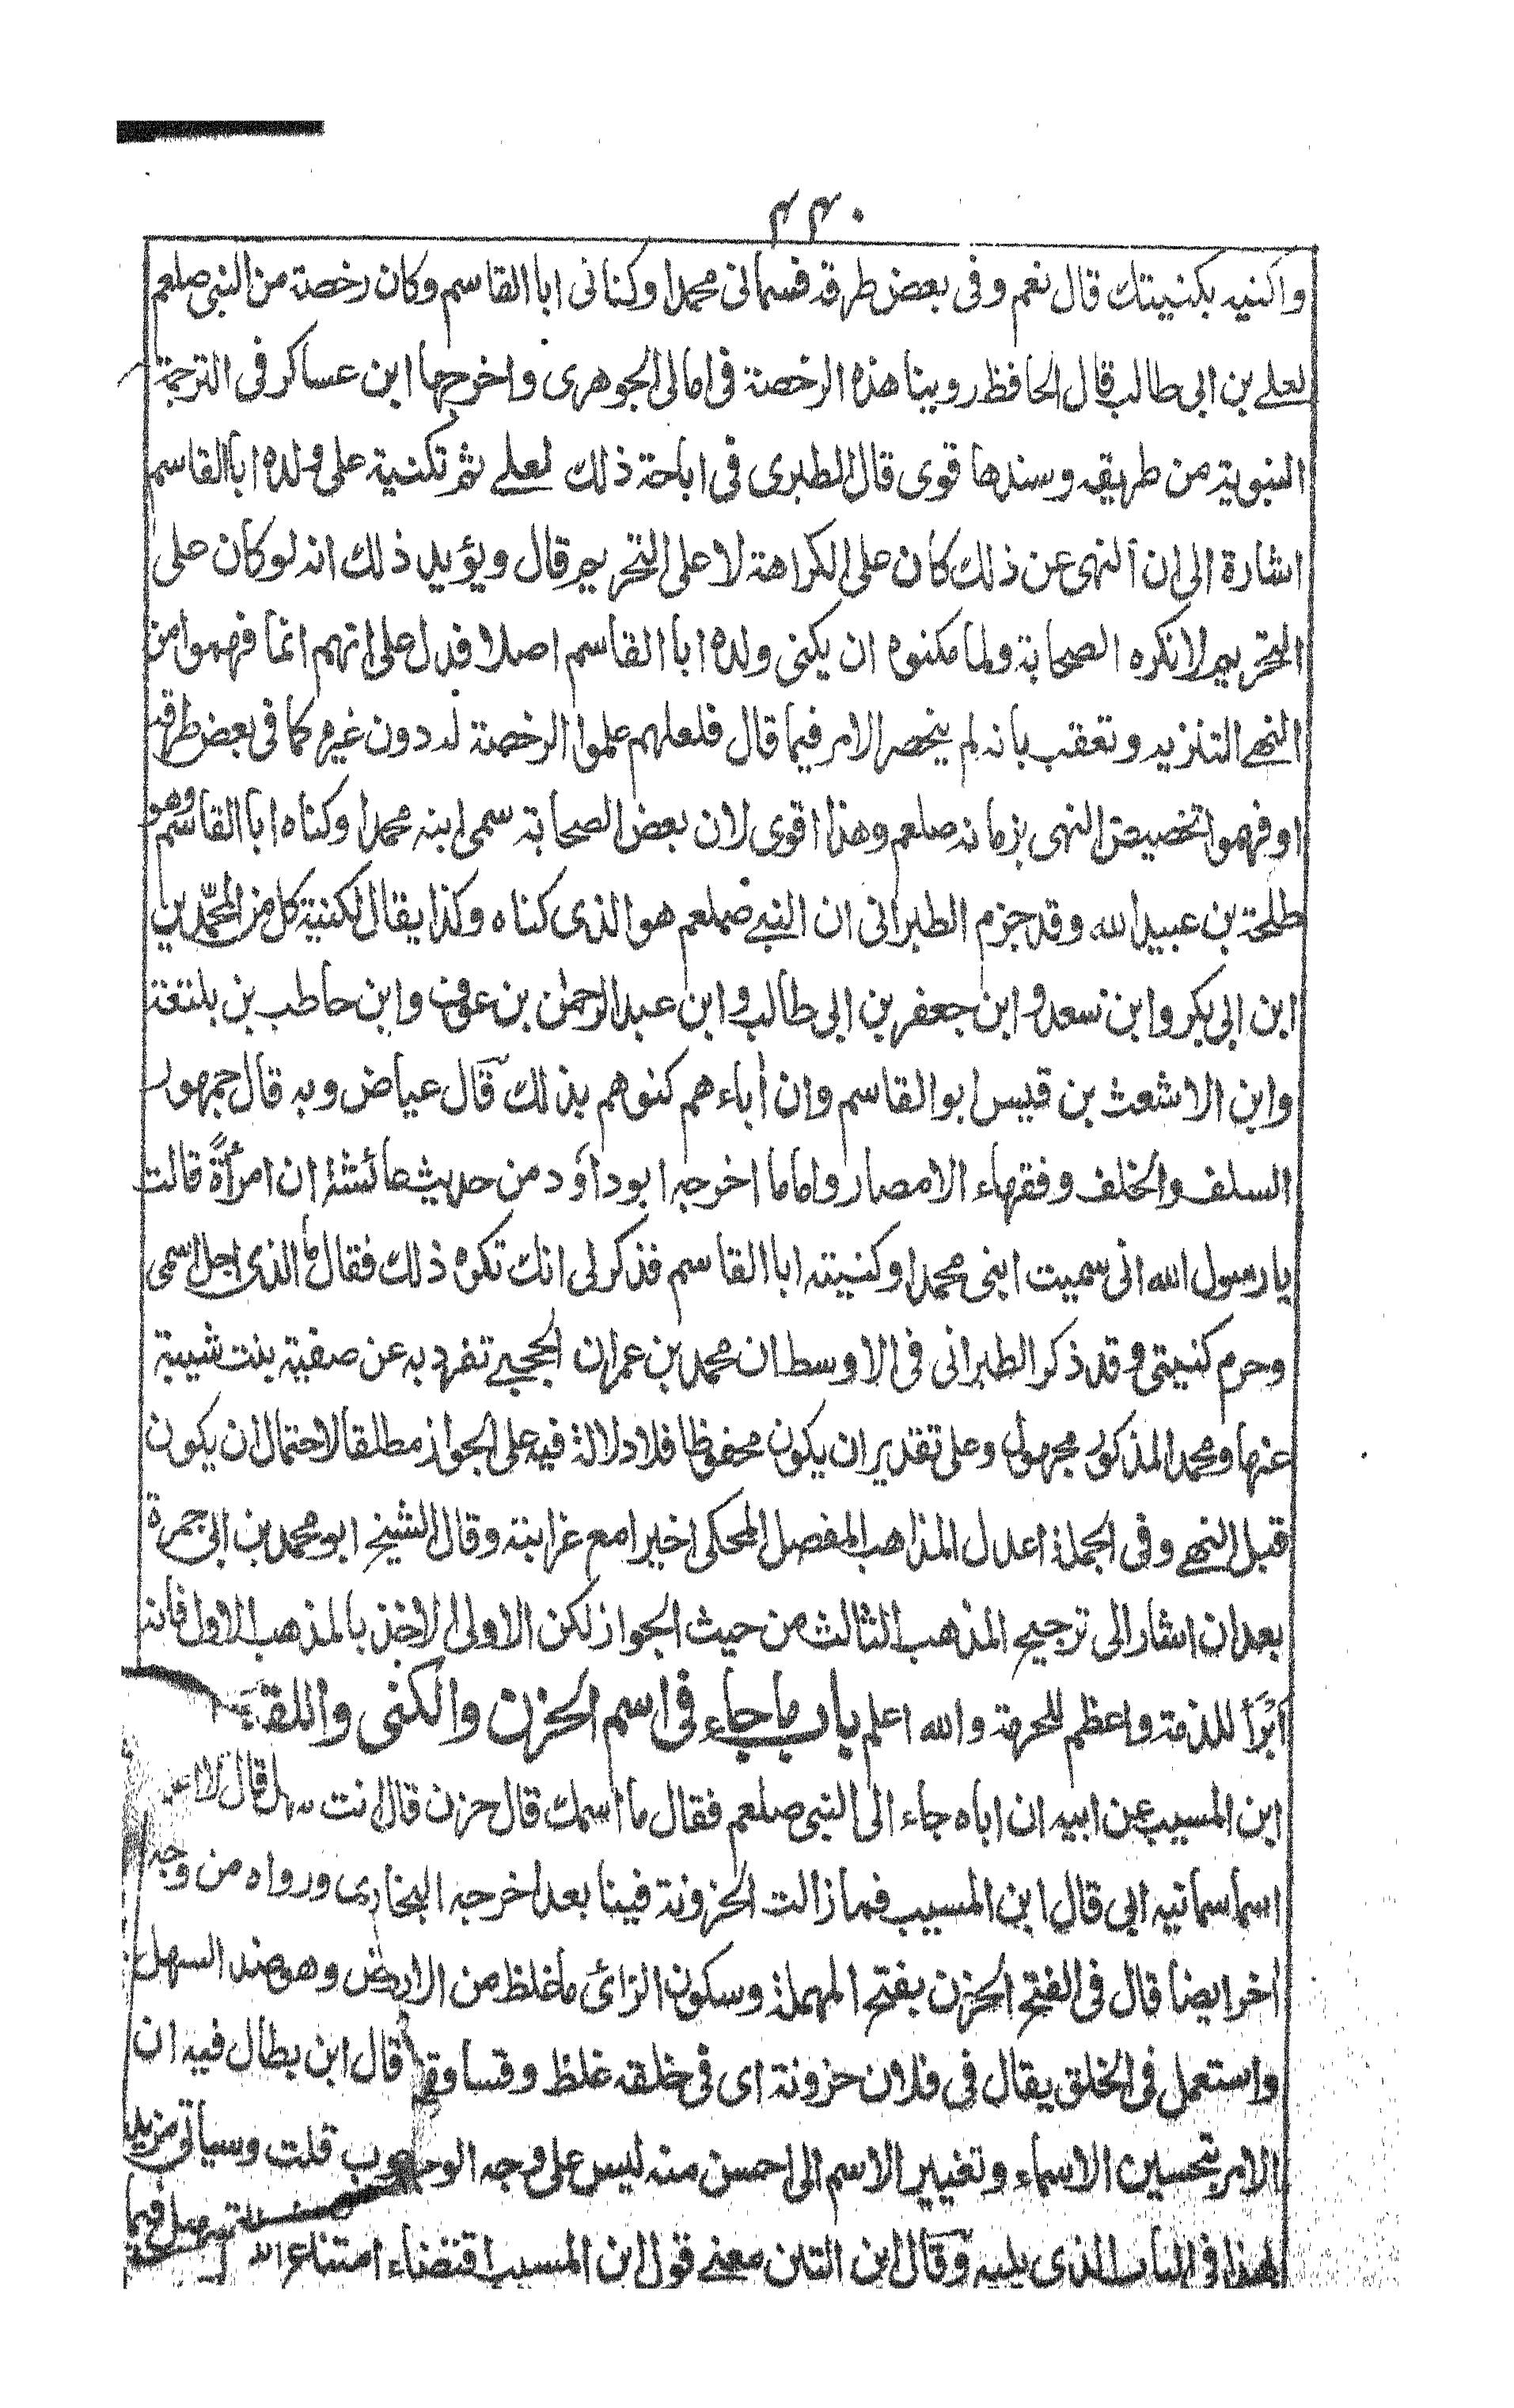 ٤٤٠
واكنيه بكنيتك قال نعم وفى بعض طرقه فسمانى محمدا وكنانى ابا القاسم وكان رخصة من النبى صلعم
لعلى بن ابى طالب قال الحافظ روينا هذه الرخصة فى امالى الجوهرى واخرجها ابن عساكر فى الترجمة
النبوية من طريقه وسندها قوى قال الطبرى فى اباحة ذلك لعلى ثم تكنية على ولده ابا القاسم
اشارة الى ان النهى عن ذلك كان على الكراهة لا على التحريم قال ويؤيد ذلك انه لو كان على
التحريم لانكره الصحابة ولما مكنوه ان يكنى ولده ابا القاسم اصلا فدل على انهم انما فهموا من
النهى التنزيه وتعقب بانه لم ينحصر الامر فيما قال فلعلهم علموا الرخصة له دون غيره كما فى بعض طرقه
او فهموا تخصيص النهى بزمانه صلعم وهذا اقوى لان بعض الصحابة سمى ابنه محمدا وكناه ابا القاسم وهو
طلحة بن عبيد الله وقد جزم الطبرانى ان النبى صلعم هو الذى كناه وكذا يقال لكنية كل من المحمدين
ابن ابى بكر وابن سعد و ابن جعفر بن ابى طالب و ابن عبد الرحمن بن عوف وابن حاطب بن بلتعة
وابن الاشعث بن قيس ابو القاسم وان أباءهم كنوهم بذلك قال عياض وبه قال جمهور
السلف والخلف وفقهاء الامصار واما ما اخرجه ابو داؤد من حديث عائشة ان امرأةً قالت
يا رسول الله انى سميت ابنى محمدا وكنيته ابا القاسم فذكر لى انك تكره ذلك فقال ما الذى احل اسمى
وحرم كنيتى وقد ذكر الطبرانى فى الاوسط ان محمد بن عمران الحجبى تفرد به عن صفية بنت شيبة
عنها ومحمد المذكور مجهول وعلى تقدير ان يكون محفوظا فلا دلالة فيه على الجواز مطلقا لاحتمال ان يكون
قبل النهى وفى الجملة اعدل المذاهب المفصل المحكى اخيرا مع غرابته وقال الشيخ ابو محمد بن ابى جمرة
بعد ان اشار الى ترجيح المذهب الثالث من حيث الجواز لكن الاولى الاخذ بالمذهب الاول فانه
أبرأ للذمة واعظم للحرمة والله اعلم باب ما جاء فى اسم الحزن والكنى واللقب
ابن المسيب عن ابيه ان اباه جاء الى النبى صلعم فقال ما اسمك قال حزن قال انت سهل قال لا
اسما سمانيه ابى قال ابن المسيب فما زالت الحزونة فينا بعد اخرجه البخارى ورواه من وجه
اخر ايضا قال فى الفتح الحزن بفتح المهملة وسكون الزائ ما غلظ من الارض وهو ضد السهل
واستعمل فى الخلق يقال فى فلان حزونة اى فى خلقه غلظ وقساوة قال ابن بطال فيه ان
الامر بتحسين الاسماء وتغيير الاسم الى احسن منه ليس على وجه الوجوب قلت وسياتى مزيد
لهذا فى الباب الذى يليه وقال ابن التين معنى قول ابن المسيب اقتضاء امتناع فيما